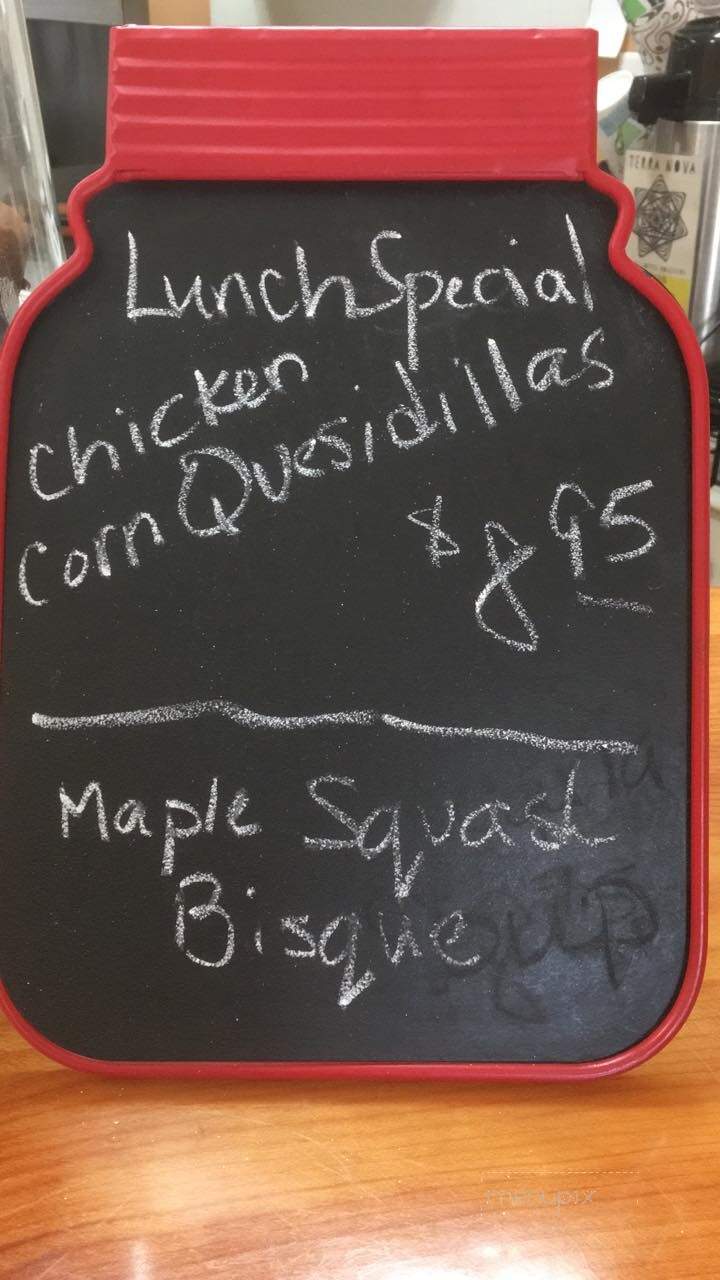 TERRA NOVA
Lunch Special
Chicken
Corn Quesidillas
$8.95
Maple Squash
Bisque
menupix